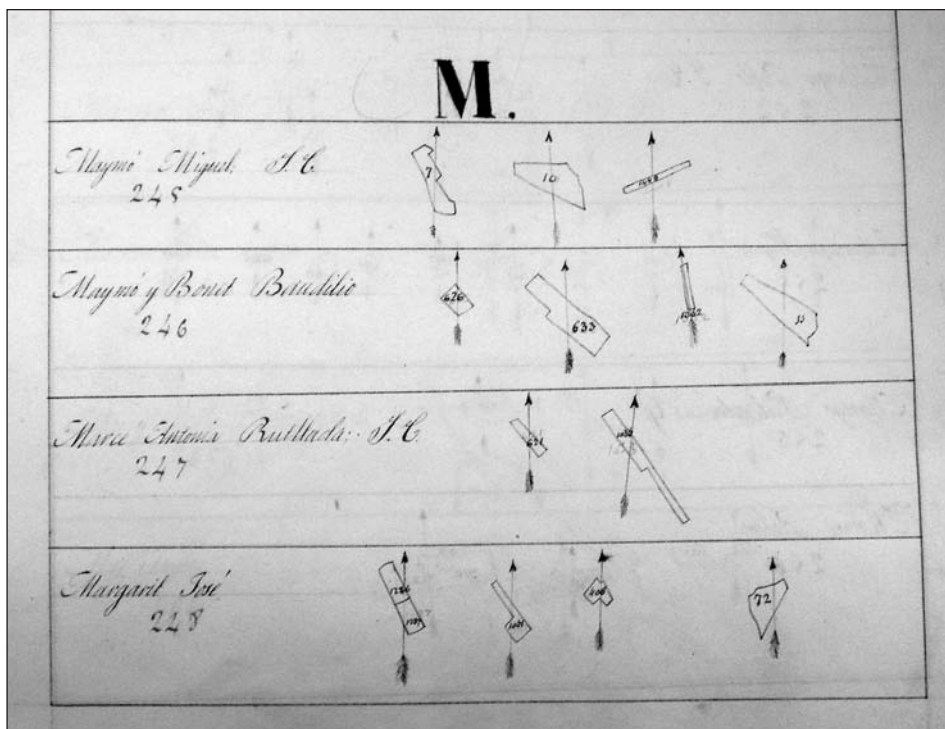 M.
Maymó Miguel: S. C.
245
7
10
Maymó y Bonet Baudilio
246
626
633
11
Marcé Antonia Rutllada: S. C.
247
631
Margarit José
248
1226
406
72